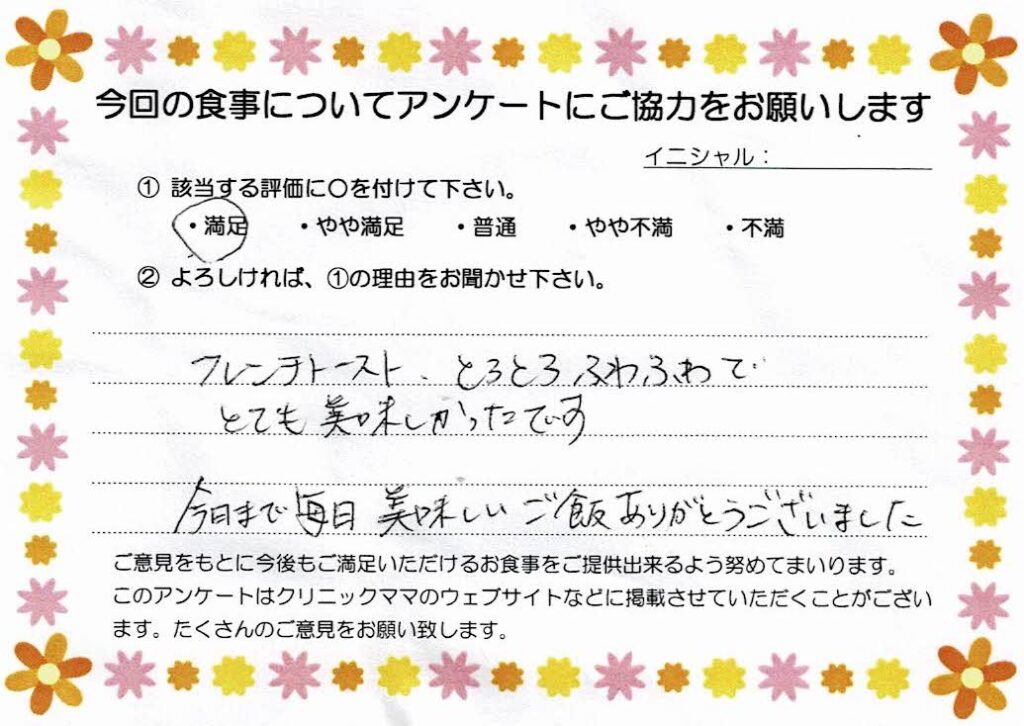 今回の食事についてアンケートにご協力をお願いします
イニシャル：
① 該当する評価に○を付けて下さい。
・満足 ・やや満足 ・普通 ・やや不満 ・不満
② よろしければ、①の理由をお聞かせ下さい。
フレンチトースト、とろとろふわふわで
とても美味しかったです
今日まで毎日美味しいご飯ありがとうございました
ご意見をもとに今後もご満足いただけるお食事をご提供出来るよう努めてまいります。
このアンケートはクリニックママのウェブサイトなどに掲載させていただくことがござい
ます。たくさんのご意見をお願い致します。